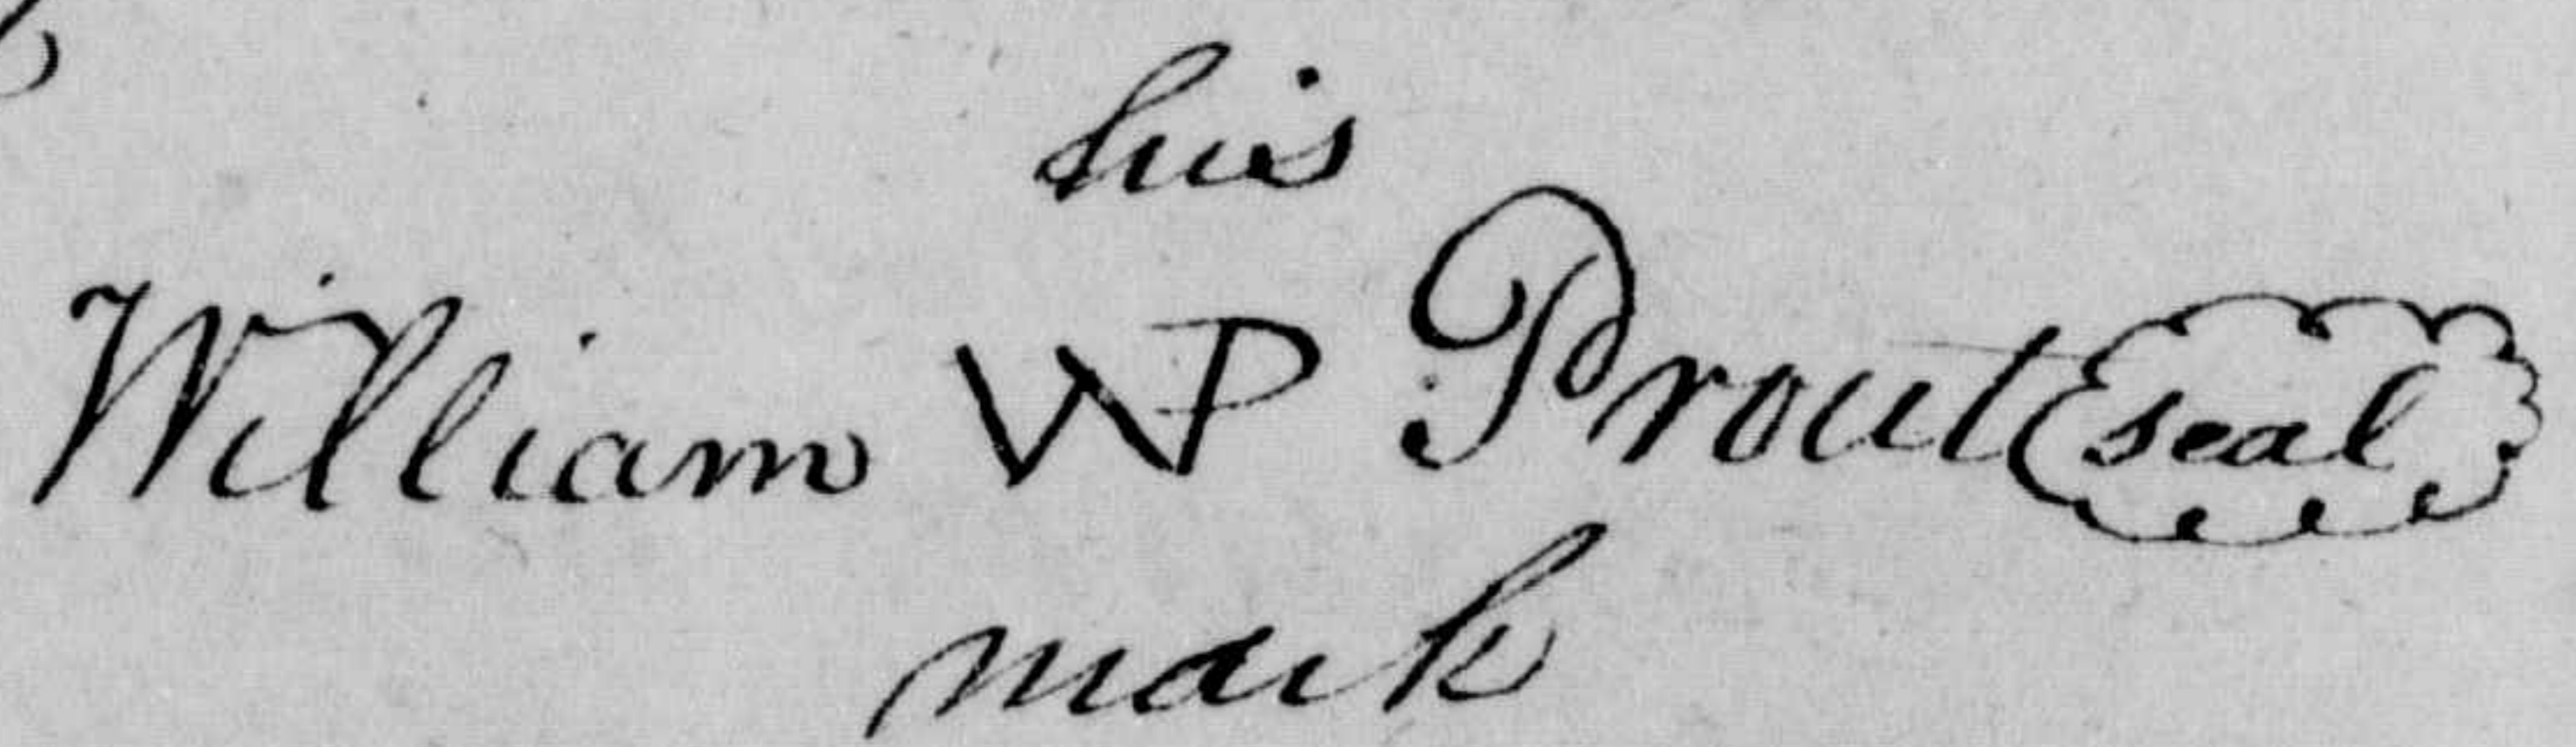 his
William WP Prout seal
mark